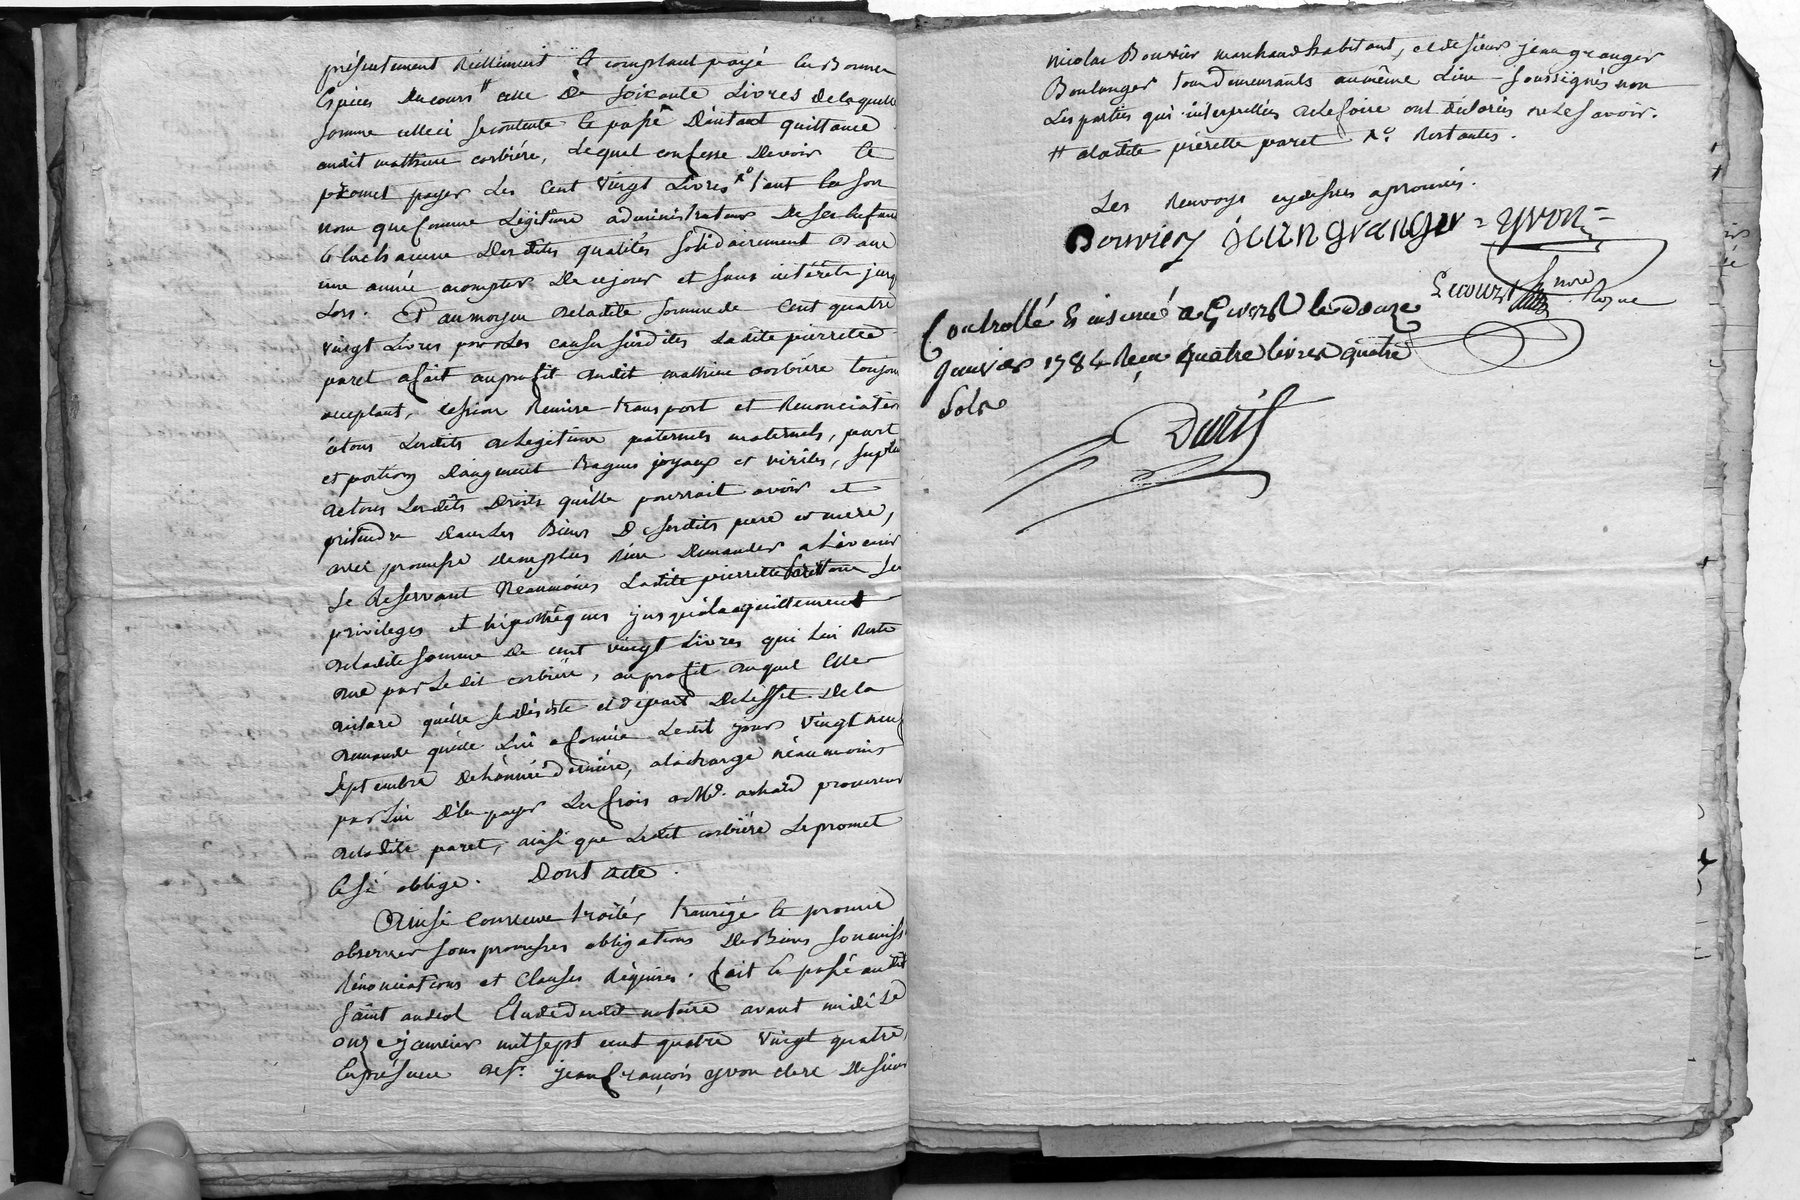 présentement Réellement & comptant payé en Bonnes
Espèces du cours # celle De soixante Livres de laquelle
somme celleci se contente & passe Dautant quittance
audit mathieu corbiére, Lequel confesse Devoir &
promet payer les cent vingt Livres R° tant en son
nom que comme Légitime administrateur De ses enfans
& en chacune Desdites qualités solidairement Dans
une année acompter De ce jour et sans intérêts jusqu
Lors. Et aumoyen de ladite somme de cent quatre
vingt Livres pour les causes susdites Ladite pierrette
paret a fait auprofit dudit mathieu corbiére toujours
acceptant, cession Remise transport et Renonciation
à tous Lesdits de Légitime paternels maternels, part
et portion d'augment Bagues joyaux et viriles, suplém
et tous Lesdits Droits quelle pourrait avoir et
prétendre dans Les Biens De sesdits pere et mere,
avec promesse de ne plus Rien Demander a L'avenir
se Reservant Neanmoins Ladite pierrette Paret ses
privileges et hipothéques jusqu'à l'acquittement
de ladite somme De cent vingt Livres qui Lui Reste
due par Ledit corbiére, au profit duquel elle
déclare quelle se désiste et départ De Leffet De la
demande quelle Lui a formée Ledit jour vingt neuf
septembre De L'année derniére, a la charge néanmoins
par Lui De payer Les frois à Md. achard procureur
de ladite paret, ainsi que Ledit corbiére Le promet
& sy oblige. Dont acte.
Ainsi Convenu traité, transigé & promis
observer sous promesses obligations De Biens soumiss
Rénonciations et Clauses Réquises. fait & passé audit
saint andéol Etude dudit notaire avant midi Le
onze janvier mil sept cent quatre vingt quatre,
En présence de sr. jean françois yvon clerc De sieur
nicolas Bouvier marchand habitant, et de sieur jean granger
Boulanger tous demeurants au même Lieu soussignés non
Les parties qui interpellées de le faire ont déclarés ne le savoir.
# a ladite pierette paret R° Restantes.
Les Renvoys cydessus aprouvés.
Bouvier jean granger = yvon =
notre
Controllé & insinué a Givors le douze
Janvier 1784 Reçu quatre livres quatre
sols